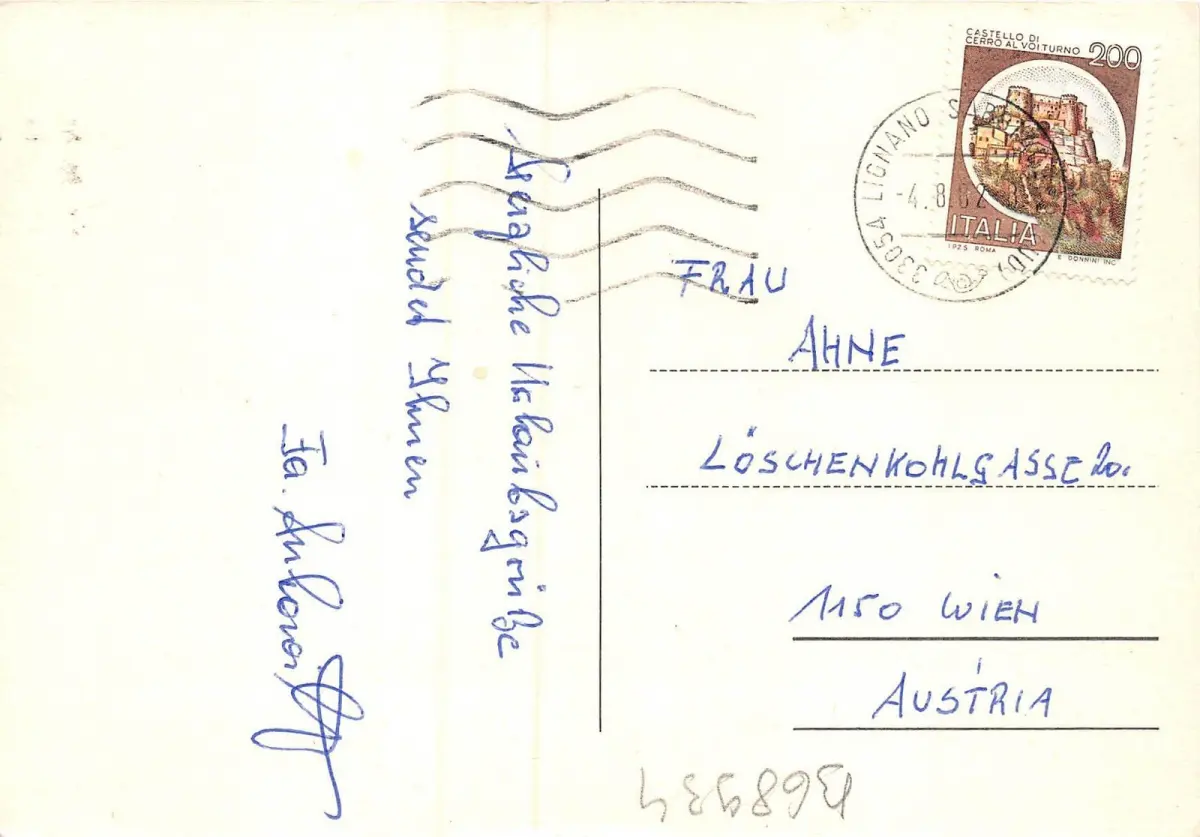 CASTELLO DI
CERRO AL VOLTURNO 200
ITALIA
1925 ROMA
E. DONNINI INC.
33054 LIGNANO SABBIADORO (UD)
-4.8.82
Herzliche Urlaubsgrüße
sendet Ihnen
Fa.
FRAU
AHNE
LÖSCHENKOHLGASSE 20.
1150 WIEN
AUSTRIA